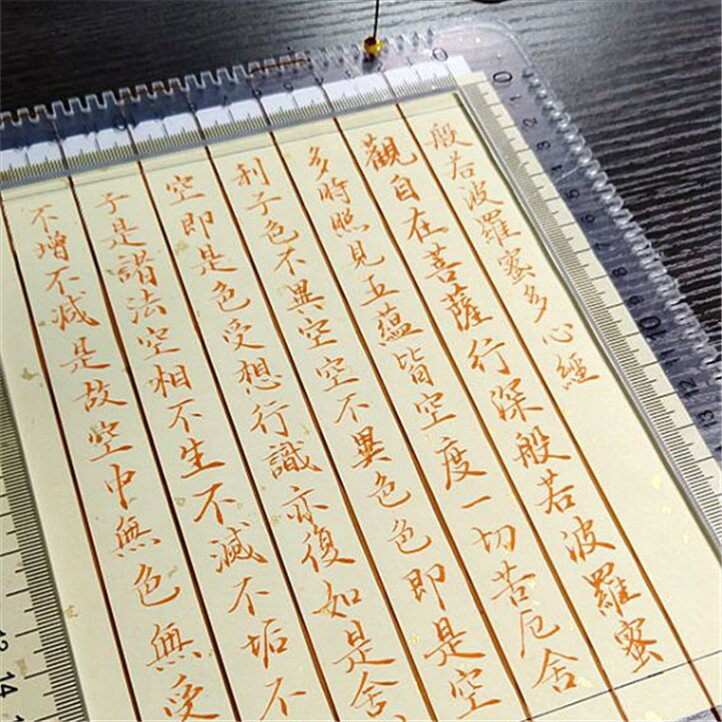 般若波羅蜜多心經
觀自在菩薩行深般若波羅蜜
多時照見五蘊皆空度一切苦厄舍
利子色不異空空不異色色即是空
空即是色受想行識亦復如是舍
子是諸法空相不生不滅不垢不
不增不減是故空中無色無受
0 1 2 3 4 5 6 7 8 9 10 11 12 13